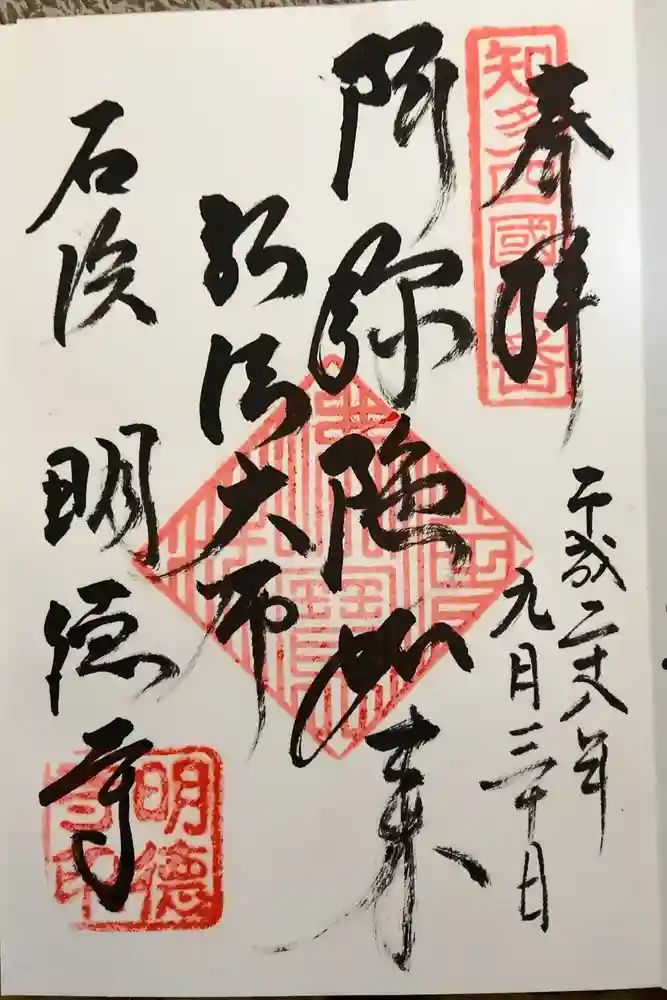 奉拜
知多四國九番
平成二十八年
九月三十日
阿弥陀如来
弘法大师
石浜 明徳寺
明德寺印